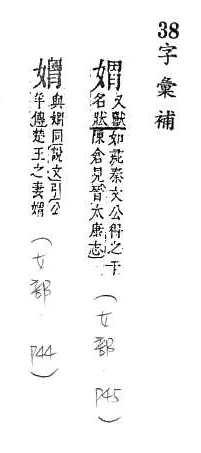 38字彙補
媦 又獸如羌秦文公得之于
名狀陳倉見晉太康志
(女部 P45)
媦 與媦同說文引公
羊傳楚王之妻媦
(女部 P44)